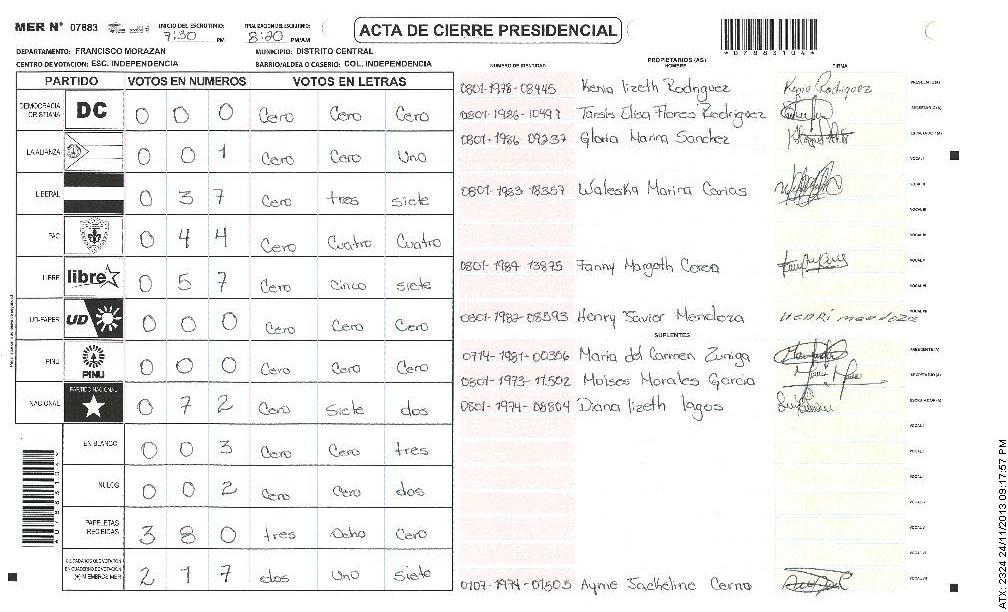 MER N° 07883 INICIO DEL ESCRUTINIO: 7:30 PM FINALIZACION DEL ESCRUTINIO: 8:20 PM/AM ACTA DE CIERRE PRESIDENCIAL *07883104*
DEPARTAMENTO: FRANCISCO MORAZAN MUNICIPIO: DISTRITO CENTRAL
CENTRO DE VOTACION: ESC. INDEPENDENCIA BARRIO/ALDEA O CASERIO: COL. INDEPENDENCIA
PARTIDO VOTOS EN NUMEROS VOTOS EN LETRAS
DEMOCRACIA CRISTIANA DC 0 0 0 Cero Cero Cero
LA ALIANZA 0 0 1 Cero Cero Uno
LIBERAL 0 3 7 Cero tres siete
PAC 0 4 4 Cero Cuatro Cuatro
LIBRE libre 0 5 7 Cero Cinco siete
UD-FAPER UD 0 0 0 Cero Cero Cero
PINU PINU 0 0 0 Cero Cero Cero
NACIONAL PARTIDO NACIONAL 0 7 2 Cero Siete dos
EN BLANCO 0 0 3 Cero Cero tres
NULOS 0 0 2 Cero Cero dos
PAPELETAS RECIBIDAS 3 8 0 tres Ocho Cero
CIUDADANOS QUE VOTARON EN CUADERNO DE VOTACION (+) MIEMBROS MER 2 1 7 dos Uno Siete
PROPIETARIOS (AS)
NUMERO DE IDENTIDAD NOMBRE FIRMA
0801-1978-08445 Kenia lizeth Rodriguez Kenia Rodriguez PRESIDENTE(A)
0801-1986-10497 Tarsis Elisa Flores Rodriguez SECRETARIO(A)
0801-1986 09237 Gloria Marina Sanchez ESCRUTADOR(A)
VOCAL I
0801-1983-18357 Waleska Marina Carias VOCAL II
VOCAL III
VOCAL IV
0801-1984-13875 Fanny Margoth Corea VOCAL V
VOCAL VI
0801-1982-08593 Henry Javier Mendoza Henri mendoza VOCAL VII
SUPLENTES
0714-1981-00306 Maria del Carmen Zuniga PRESIDENTE(A)
0801-1973-11502 Moises Morales Garcia SECRETARIO(A)
0801-1974-08804 Diana lizeth lagos ESCRUTADOR(A)
VOCAL I
VOCAL II
VOCAL III
VOCAL IV
VOCAL V
VOCAL VI
0107-1974-01505 Ayme Jackeline Cerna VOCAL VII
ATX: 2324 24/11/2013 09:17:57 PM